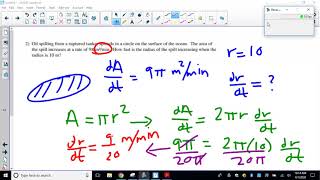 2) Oil spilling from a ruptured tanker spreads in a circle on the surface of the ocean. The area of
the spill increases at a rate of 9π m²/min. How fast is the radius of the spill increasing when the
radius is 10 m?
r = 10
dA/dt = 9π m²/min
dr/dt = ?
A = πr² → dA/dt = 2πr dr/dt
dr/dt = 9/20 m/min ← 9π/20π = 2π(10)/20π dr/dt